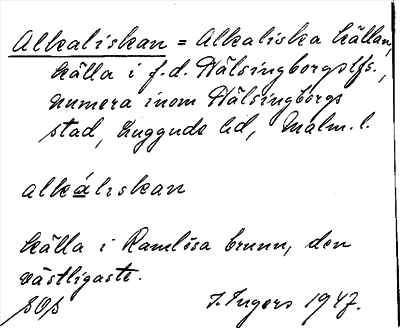 Alkaliskan = Alkaliska källan,
källa i f.d. Hälsingborgslfs.,
numera inom Hälsingborgs
stad, Luggude hd, Malm. l.
alkáliskan
källa i Ramlösa brunn, den
västligaste.
I. Ingers 1947.